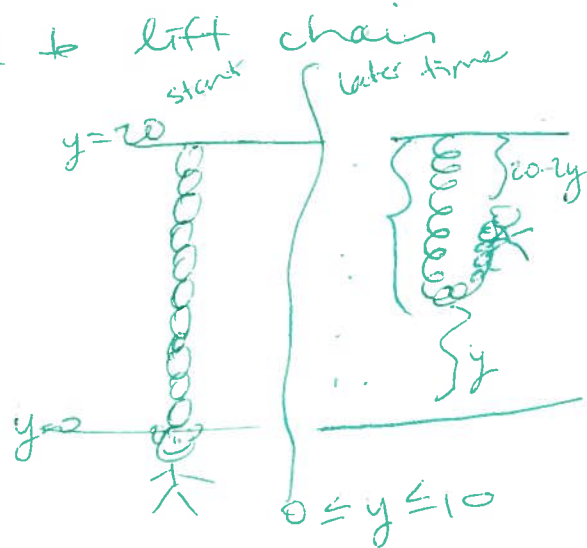 to lift chain
start later time
y=20
20-2y
y
y=0
0 ≤ y ≤ 10